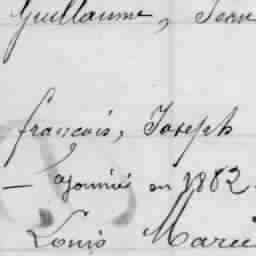 Guillaume, Jean
françois, Joseph
— ajourné en 1882.
Louis Marie